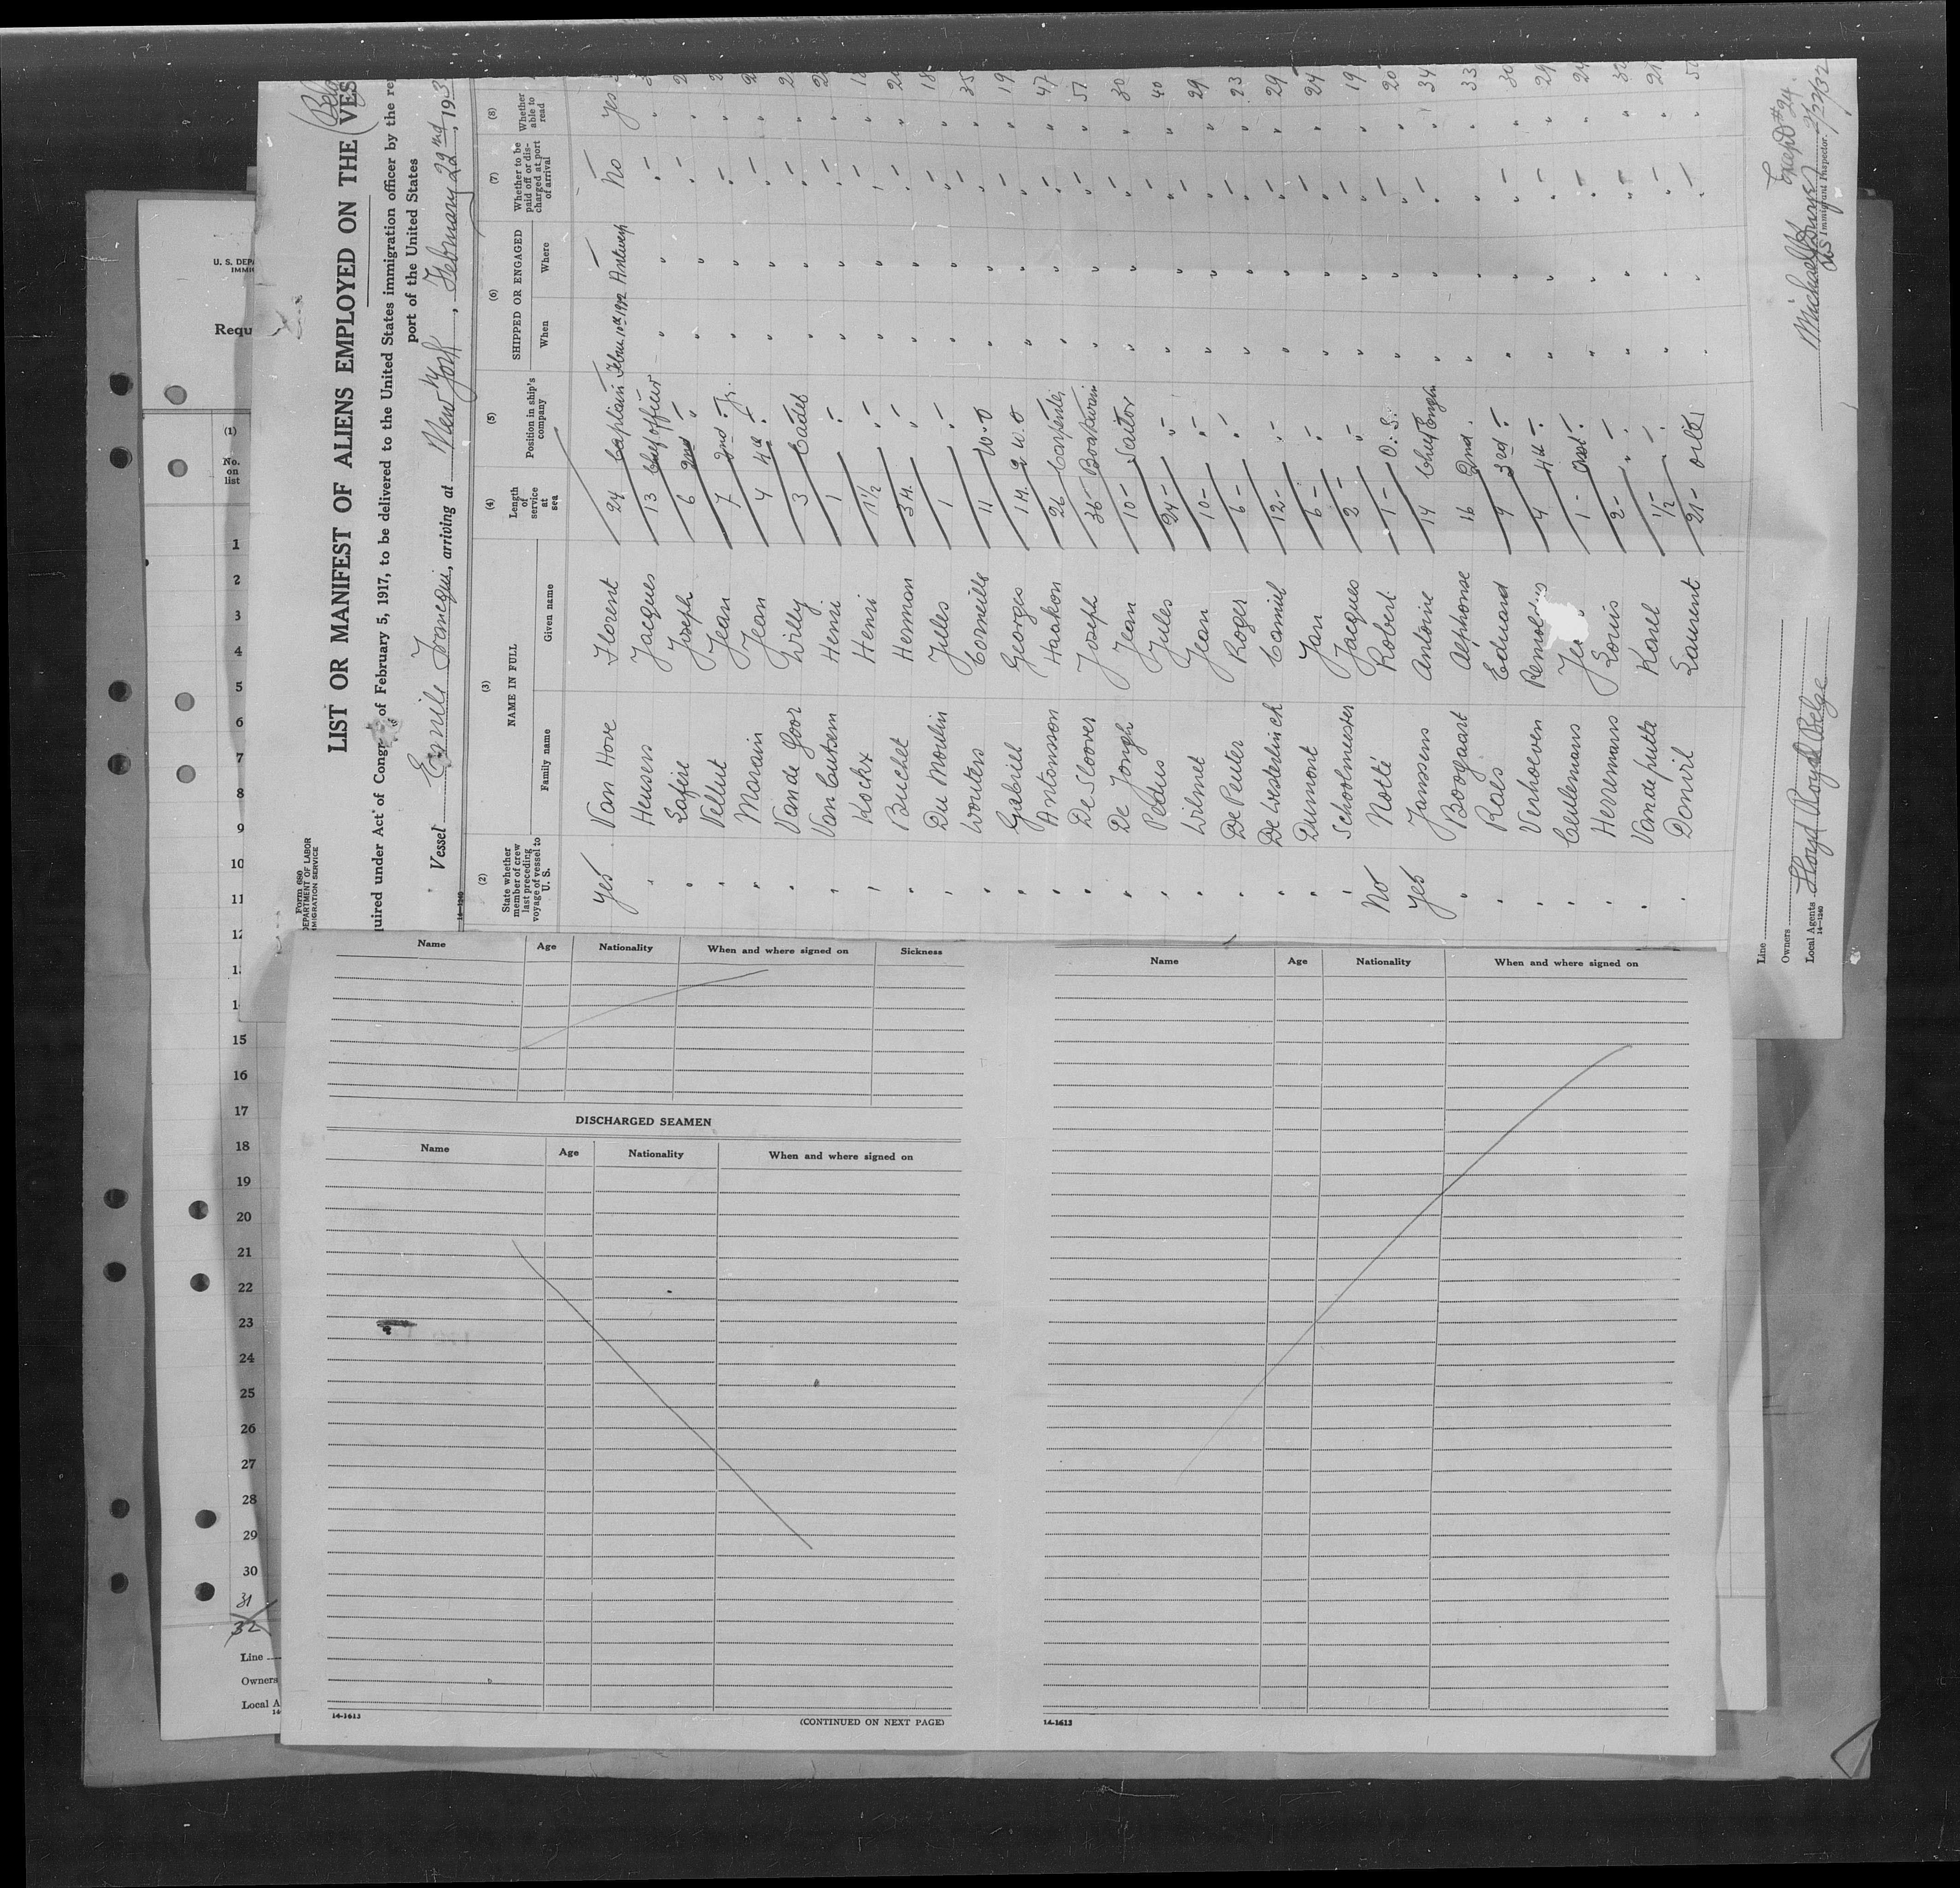 Form 680
DEPARTMENT OF LABOR
IMMIGRATION SERVICE
LIST OR MANIFEST OF ALIENS EMPLOYED ON THE
(Belg
(VES
quired under Act of Congr of February 5, 1917, to be delivered to the United States immigration officer by the re
port of the United States
Vessel Emile Francqui, arriving at New York, February 22nd, 193
14-1240
(2) (3) (4) (5) (6) (7) (8)
State whether member of crew last preceding voyage of vessel to U. S.
NAME IN FULL
Family name Given name
Length of service at sea
Position in ship's company
SHIPPED OR ENGAGED
When Where
Whether to be paid off or discharged at port of arrival
Whether able to read
Yes Van Hove Florent 24 Captain Febru 10th 1932 Antwerp No Yes
" Heusers Jacques 13 Chief officer " " " "
" Lafère Joseph 6 2nd " " " " " 2
" Vellut Jean 7 2nd " Jr. " " " " 2
" Morain Jean 4 4th " " " " " 2
" Van de Goor Willy 3 Cadet " " " " 2
" Van Cutsem Henri 1 " " " " " 2
" Kockx Henri 1½ " " " " " 1
" Buchet Herman 3 M. " " " " " 2
" Du Moulin Jules 1 " " " " " 18
" Wouters Corneille 11 W. O " " " " 35
" Gabriel Georges 1 M. 2 W. O " " " " 19
" Antonsson Haakon 26 Carpenter " " " " 47
" De Sloover Joseph 36 Boatswain " " " " 51
" De Jongh Jean 10 Sailor " " " " 30
" Jules 24 " " " " " 40
" Wilmet Jean 10 " " " " " 29
" De Peuter Roger 6 " " " " " 23
" Camiel 12 " " " " " 29
" Dumont Jan 6 " " " " " 24
" Schoolmeester Jacques 2 " " " " " 19
No Notté Robert 1 O. S. " " " " 20
Yes Janssens Antoine 14 Chief Engin " " " " 34
" Boogaart Alphonse 16 2nd " " " " " 33
" Raes Eduard 9 3rd " " " " " 30
" Verhoeven 4 4th " " " " " 29
" Ceulemans Je 1 Asst. " " " " " 24
" Herremans Louis 2 " " " " " 32
" Van de putte Karel 1/2 " " " " " 21
" Denil Laurent 21 Oiler " " " " 50
Line
Owners
Local Agents Lloyd Royal Belge
14-1240
Except #24.
Michael
Immigrant Inspector.
2/22/32
U. S. DEPA
IMMIG
Requ
(1)
No. on list
1
2
3
4
5
6
7
8
9
10
11
12
13
1
15
16
17
18
19
20
21
22
23
24
25
26
27
28
29
30
31
32
Line
Owners
Local A
14
Name Age Nationality When and where signed on Sickness
DISCHARGED SEAMEN
Name Age Nationality When and where signed on
14-1613
(CONTINUED ON NEXT PAGE)
Name Age Nationality When and where signed on
14-1613